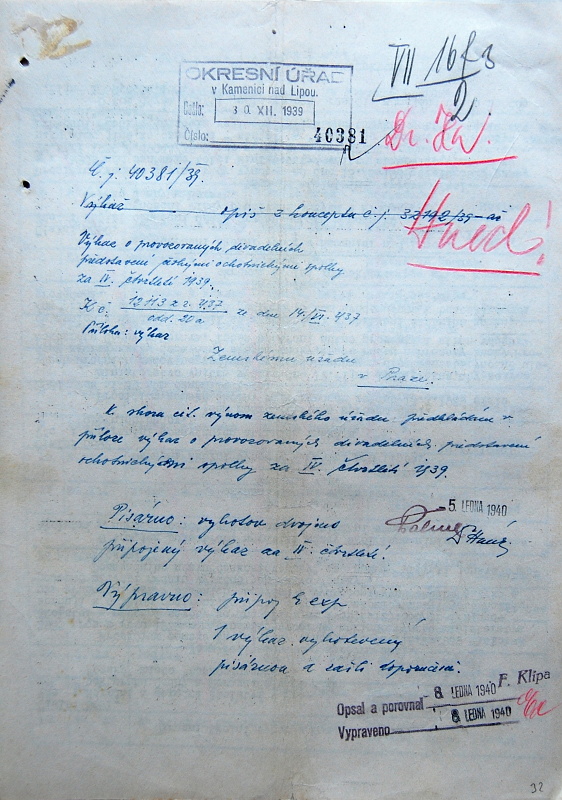 OKRESNÍ ÚŘAD
v Kamenici nad Lipou.
Došlo: 30. XII. 1939
Číslo: 40381
VII 16/3
2
Dr. Ha.
Ihned!
Č. j. 40381/39.
Výkaz opis z konceptu č. j. 32192/39-ai
Výkaz o provozovaných divadelních
představení
za IV. čtvrtletí 1939.
K č. 12113 z r. 1937 ze dne 14./VI. 1937
odd. 20a
Příloha: výkaz
Zemskému úřadu
v Praze.
K shora cit. výnosu zemského úřadu předkládám v
příloze výkaz o provozovaných divadelních představení
ochotnickými spolky za IV. čtvrtletí 1939.
5. LEDNA 1940
Písárno: vyhotov dvojmo
připojený výkaz za IV. čtvrtletí.
Výpravno: připoj k exp
1 výkaz vyhotovený
písárnou a zašli doporučeně.
Opsal a porovnal 8. LEDNA 1940 F. Klípa
Vypraveno 8. LEDNA 1940
32